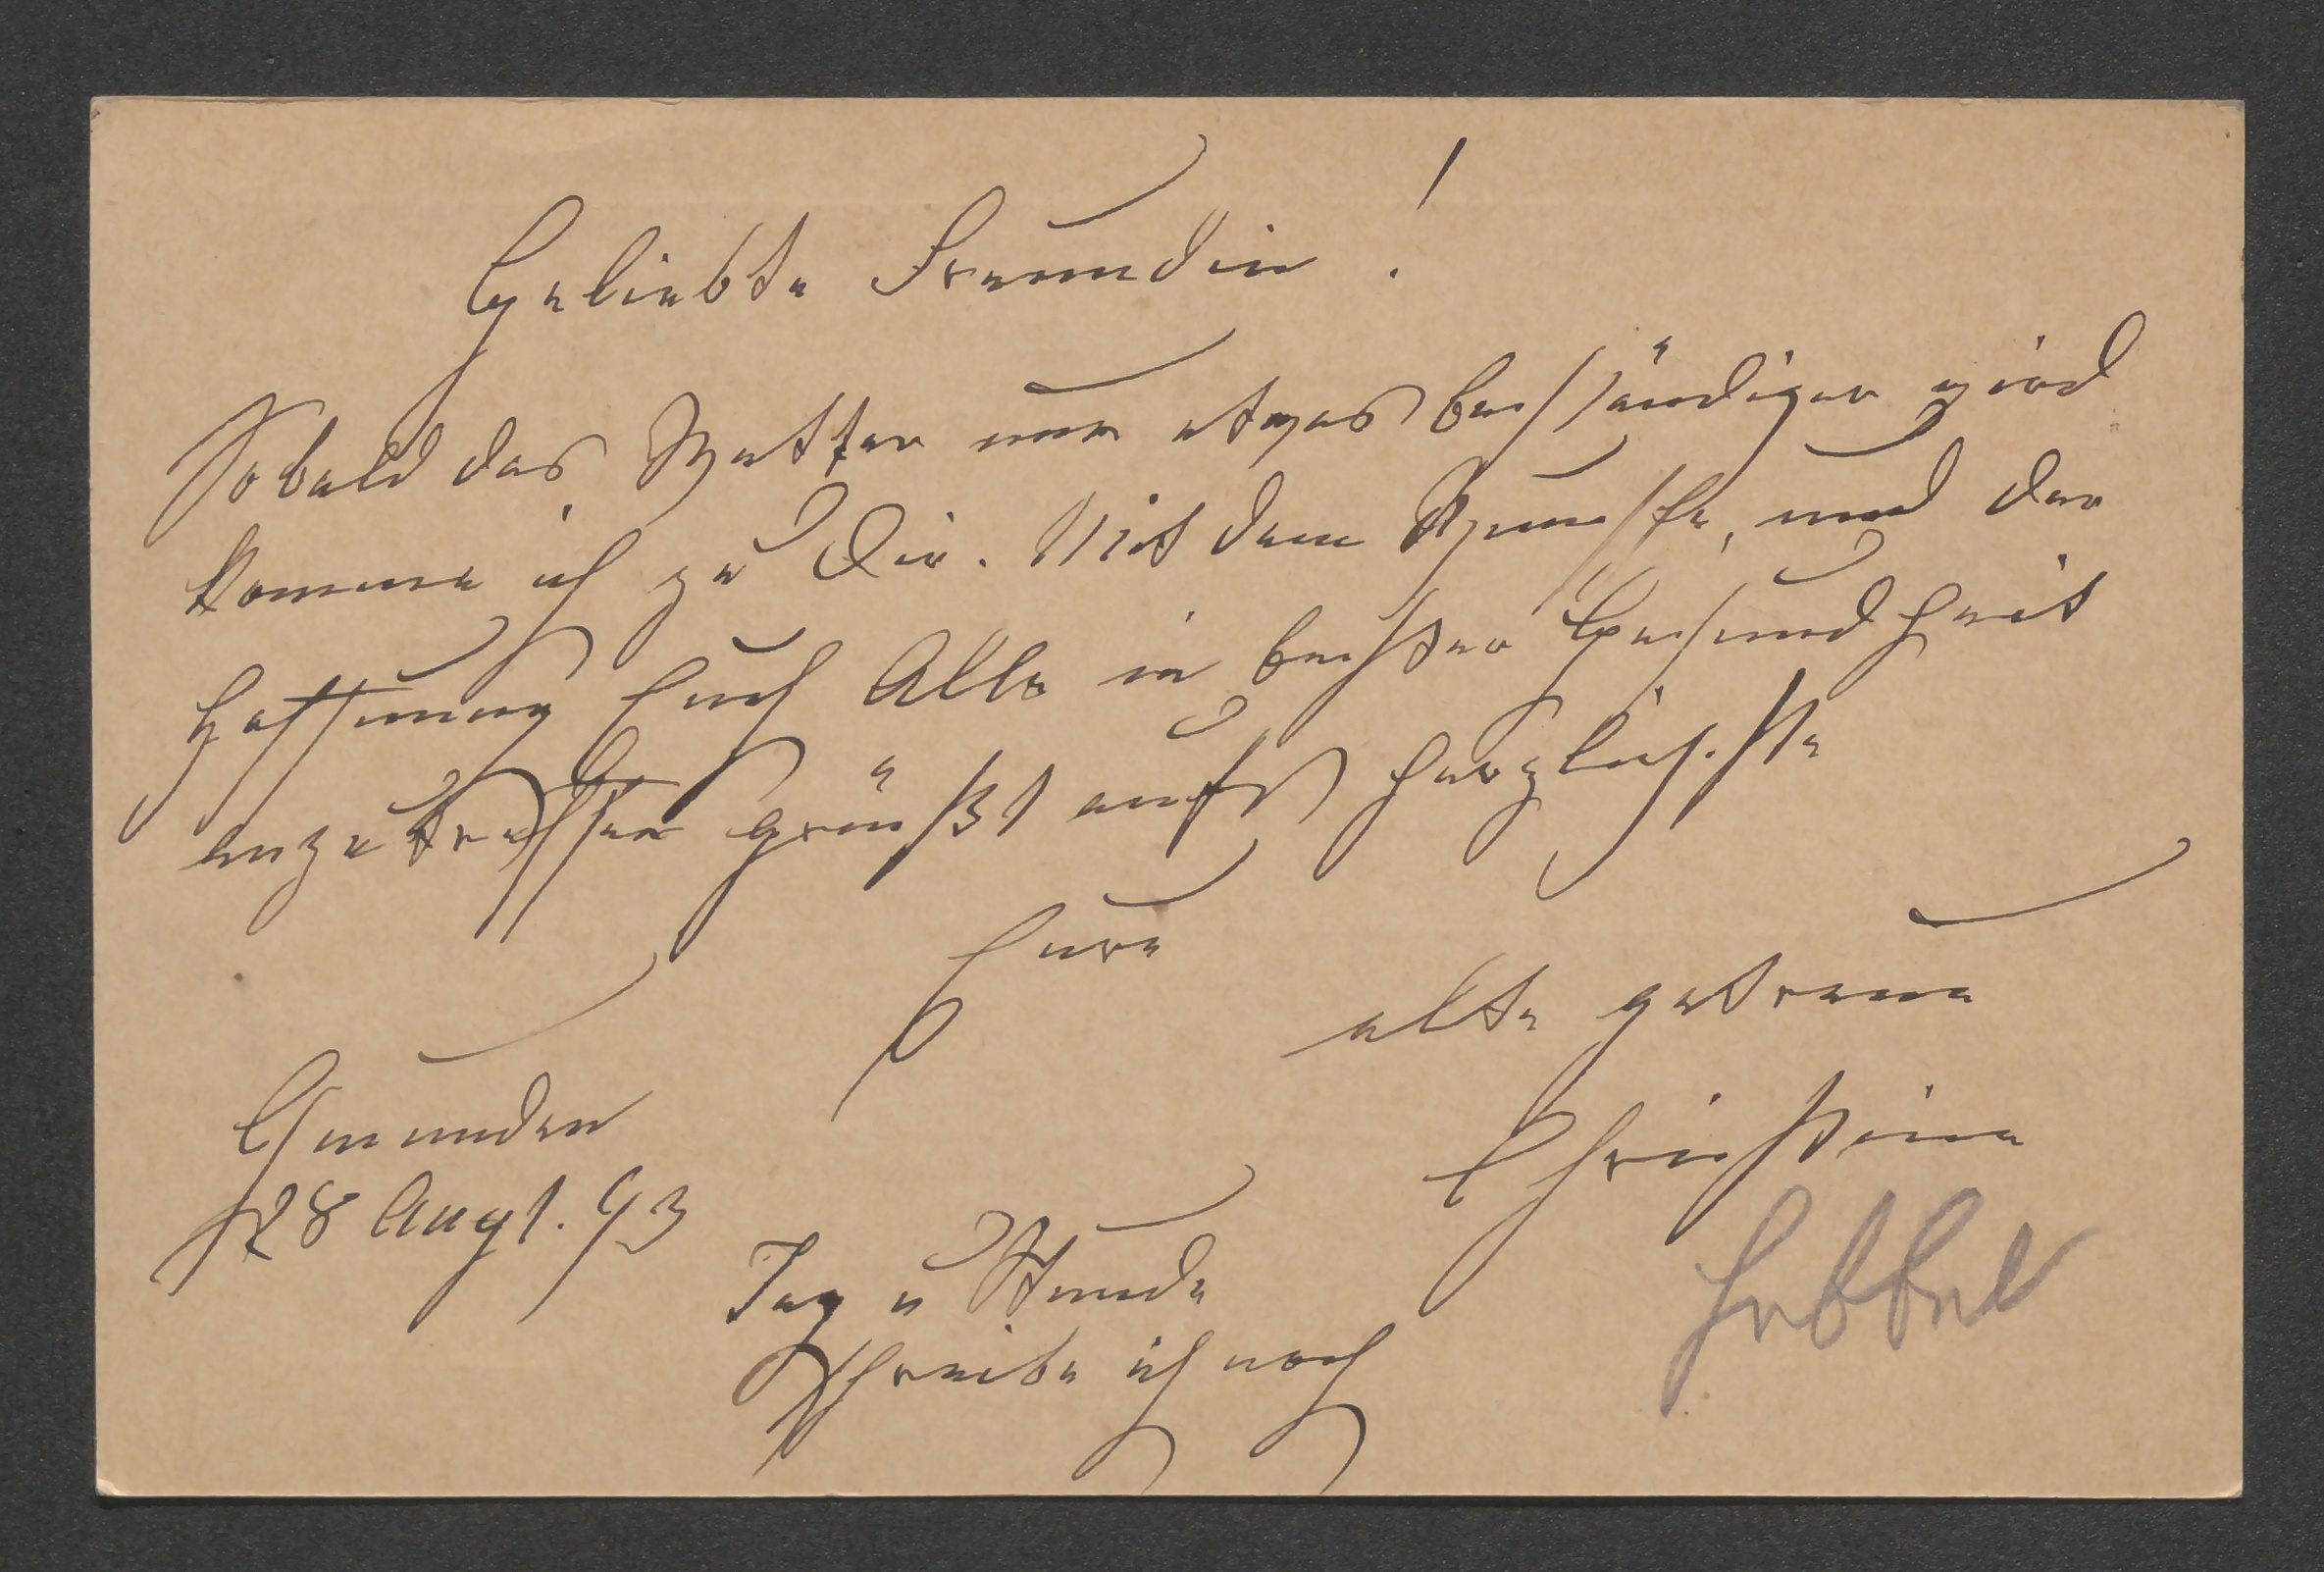 Geliebte Freundin!
Sobald das Wetter nur etwas beständiger wird
komme ich zu Dir. Mit dem Wunsche, und der
Hoffnung Euch Alle in bester Gesundheit
anzutreffen grüßt aufs herzlichste
Eure
alte getreue
Christine
Hebbel
Gmunden
28 Augt. 93
Tag u Stunde
schreibe ich noch